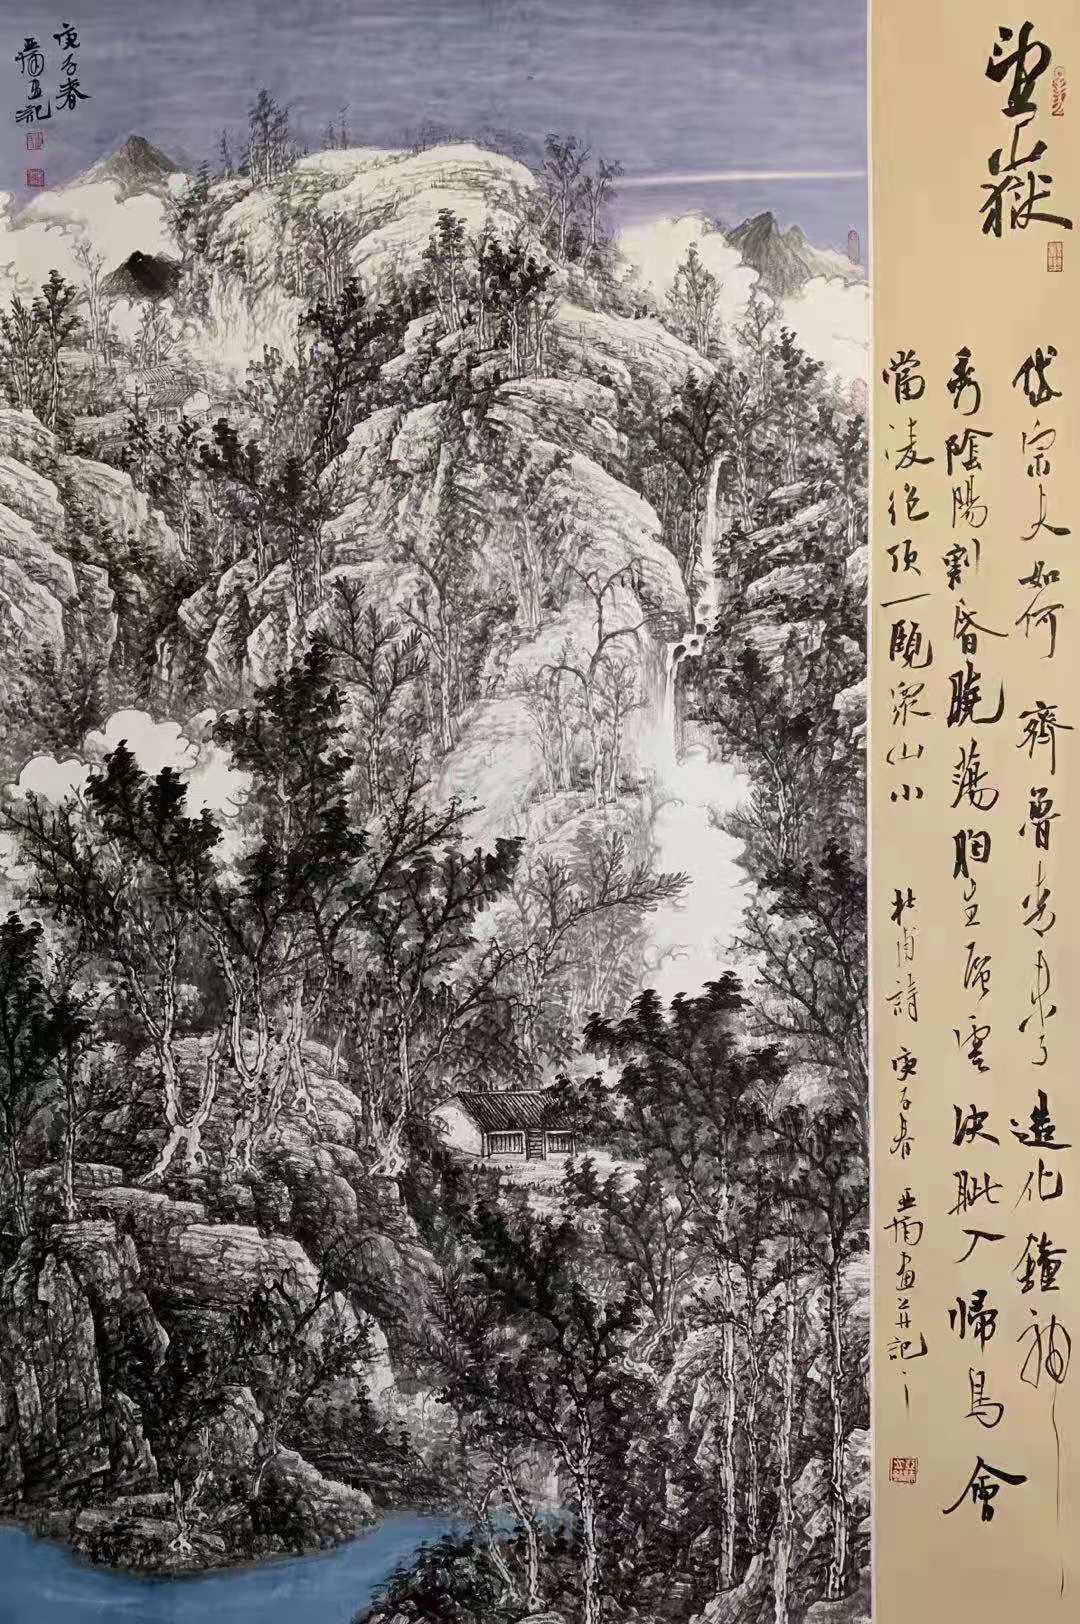 望嶽
岱宗夫如何齊魯青未了造化鐘神
秀陰陽割昏曉蕩胸生層雲決眦入歸鳥會
當凌绝頂一覽眾山小 杜甫詩 庚子春 亚画并記
庚子春
亚画記